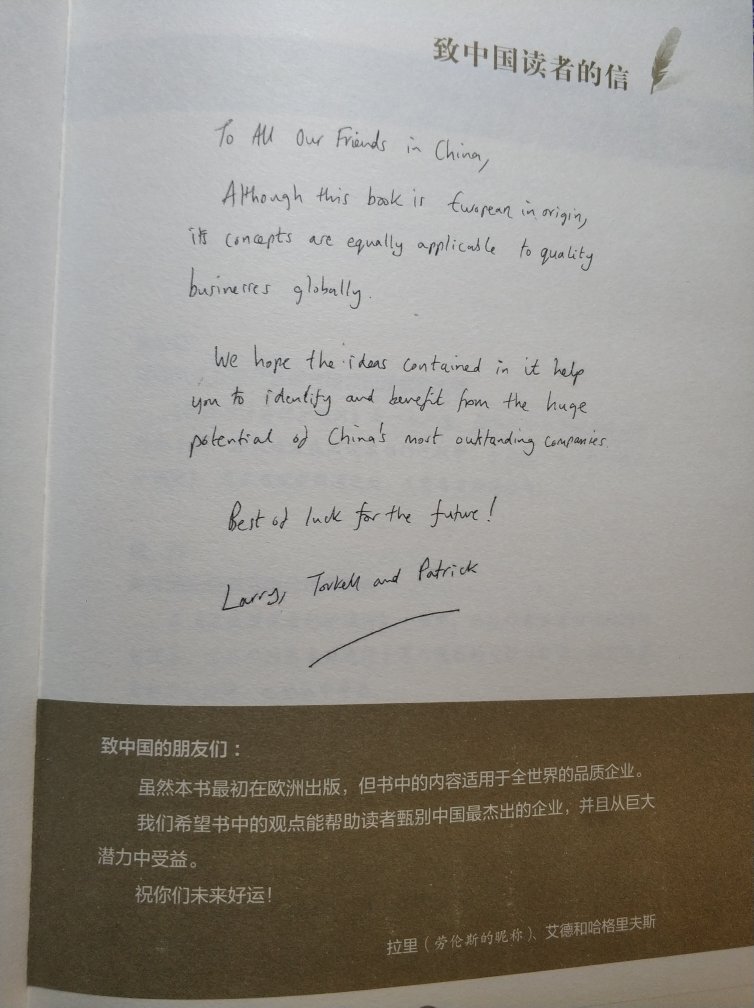 致中国读者的信
To All Our Friends in China,
Although this book is European in origin,
its concepts are equally applicable to quality
businesses globally.
We hope the ideas contained in it help
you to identify and benefit from the huge
potential of China's most outstanding companies.
Best of luck for the future!
Larry, Torkell and Patrick
致中国的朋友们：
虽然本书最初在欧洲出版，但书中的内容适用于全世界的品质企业。
我们希望书中的观点能帮助读者甄别中国最杰出的企业，并且从巨大
潜力中受益。
祝你们未来好运！
拉里（劳伦斯的昵称）、艾德和哈格里夫斯